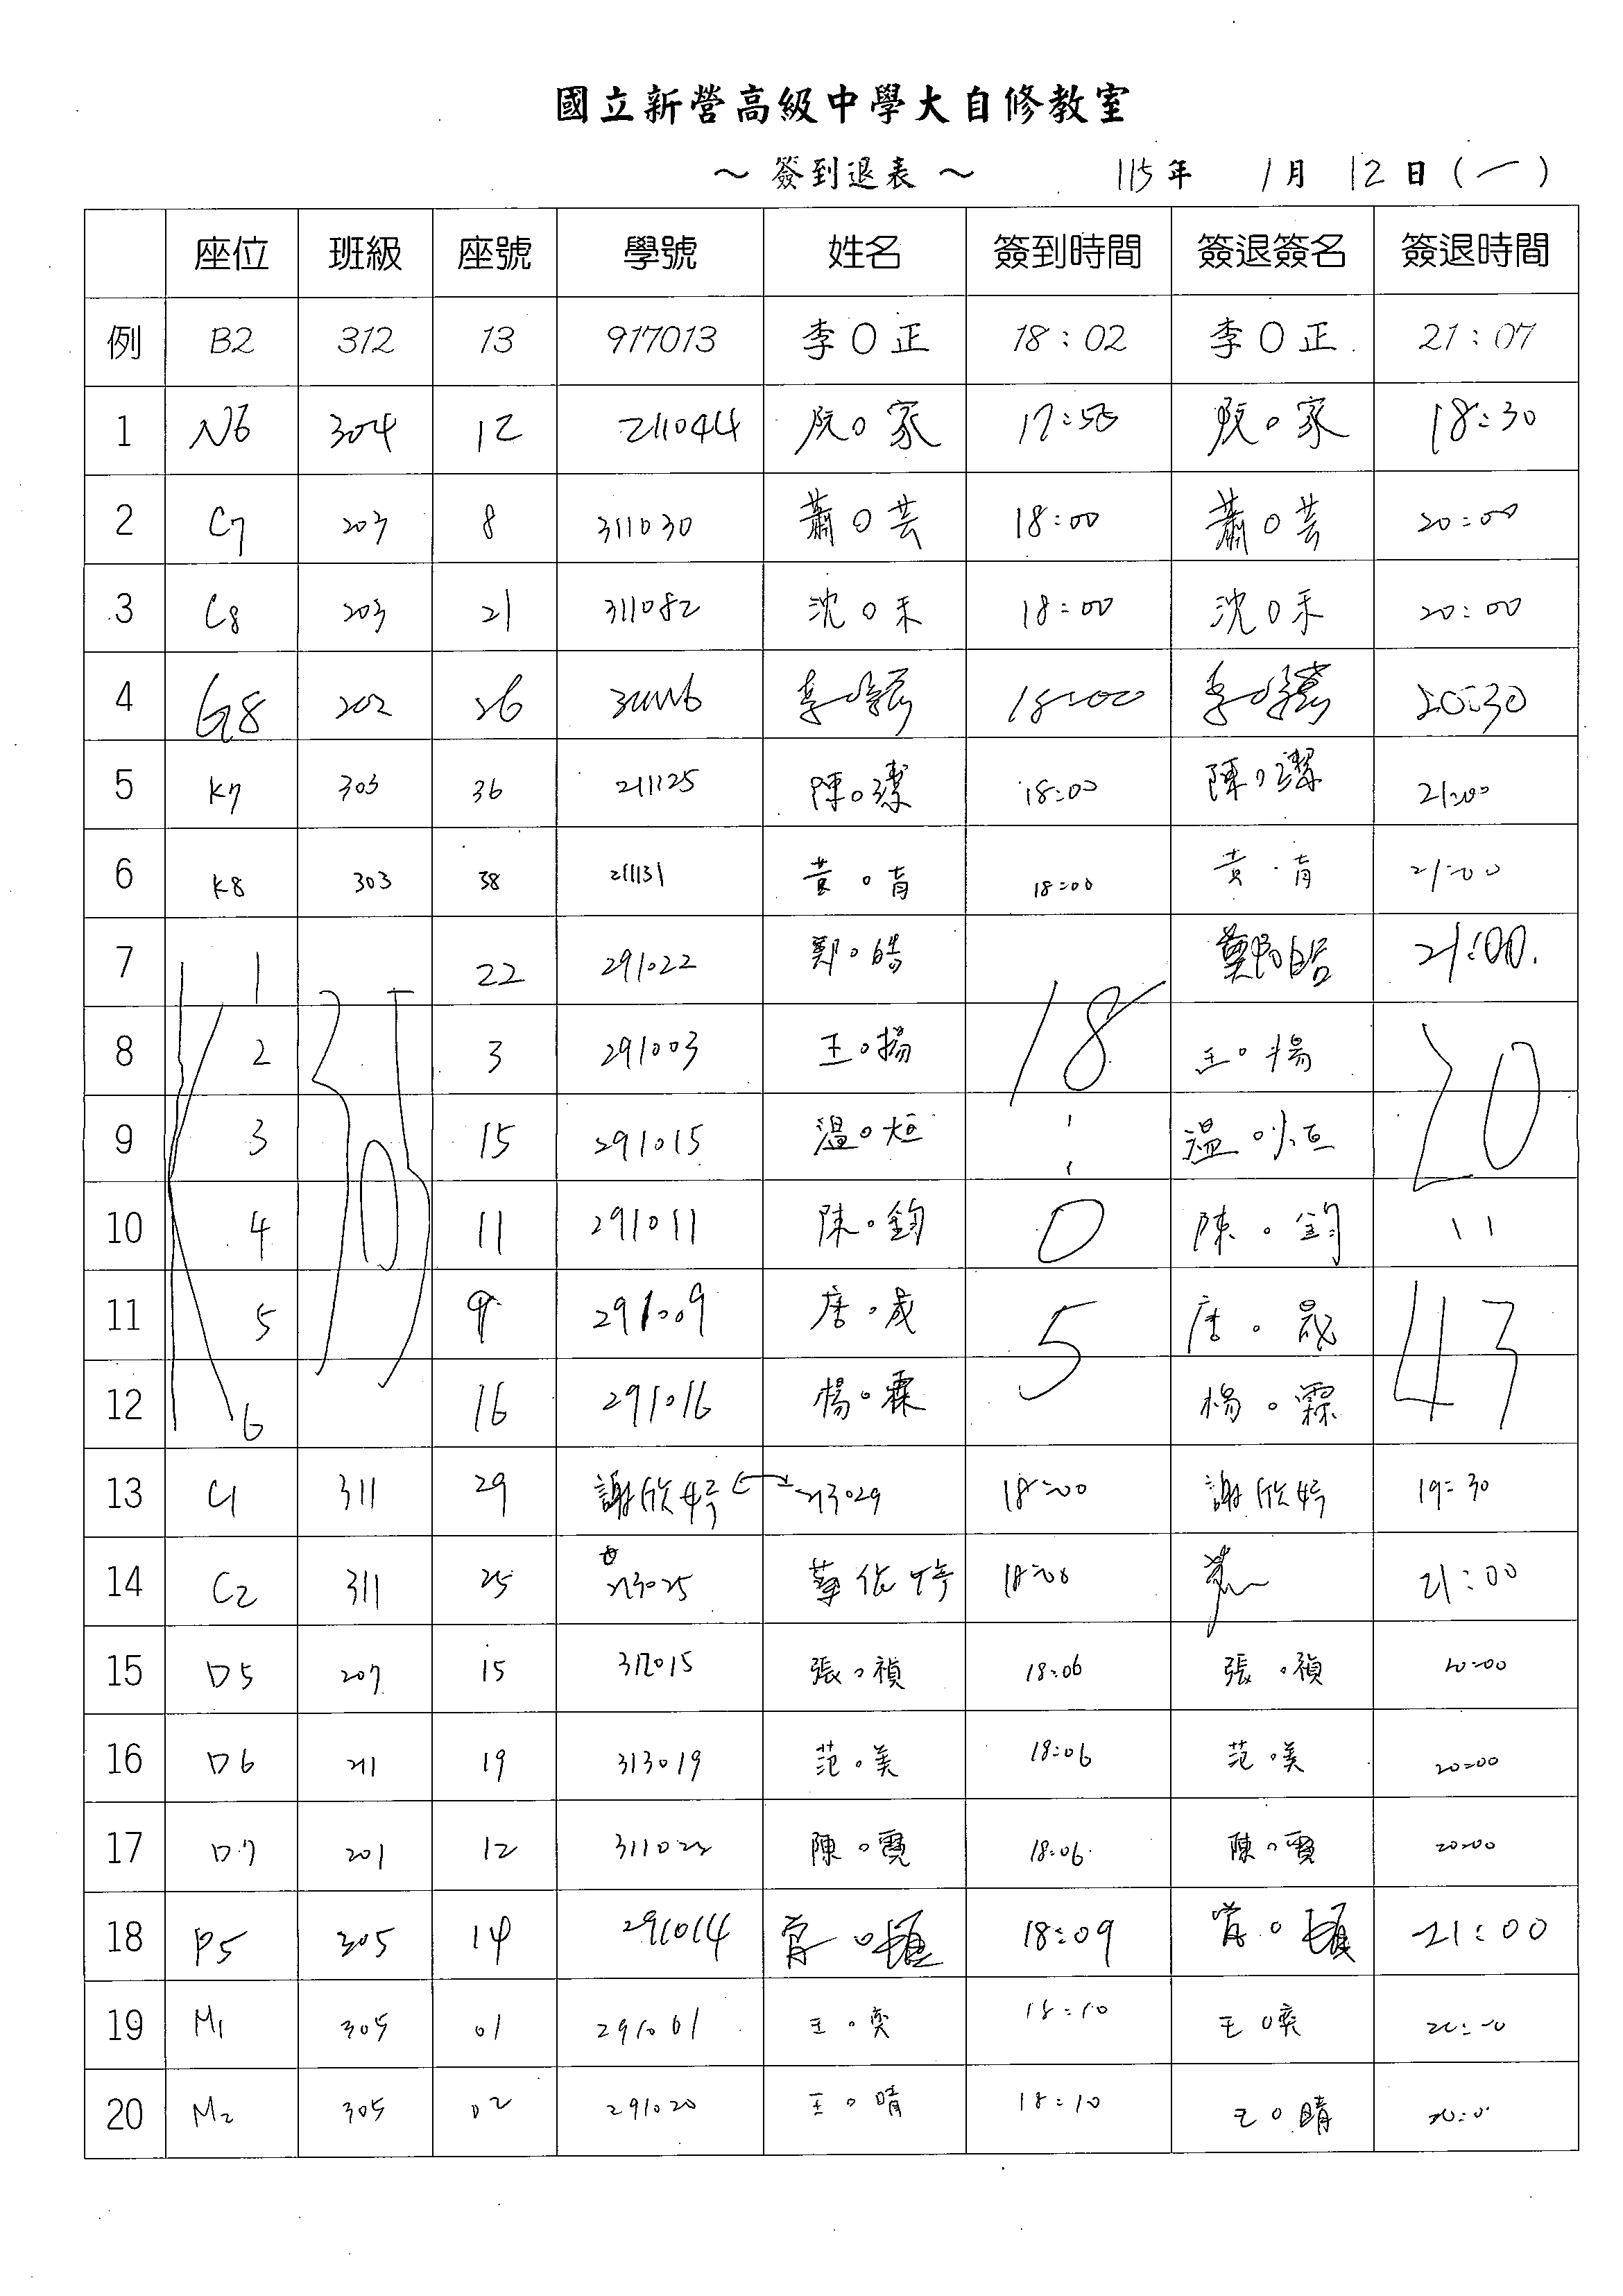 國立新營高級中學大自修教室
～簽到退表～ 115年 1月 12日(一)
座位 班級 座號 學號 姓名 簽到時間 簽退簽名 簽退時間
例 B2 312 13 917013 李O正 18:02 李O正 21:07
1 N6 304 12 211044 阮O家 17:56 阮O家 18:30
2 C7 203 8 311030 蕭O芸 18:00 蕭O芸 20:00
3 C8 203 21 311082 沈O禾 18:00 沈O禾 20:00
4 G8 202 26 李O 18:00 李O 20:30
5 K7 303 36 211125 陳O潔 18:00 陳O潔 21:00
6 K8 303 38 211131 黃O青 18:00 黃O青 21:00
7 1 22 291022 鄭O皓 鄭O皓 21:00
8 K 2 305 3 291003 王O揚 18:05 王O揚 20:43
9 3 15 291015 溫O恒 溫O恒
10 4 11 291011 陳O鈞 陳O鈞
11 5 9 291009 唐O晟 唐O晟
12 6 16 291016 楊O霖 楊O霖
13 C1 311 29 謝欣妤 ↔ 213029 18:00 謝欣妤 19:30
14 C2 311 25 213025 依婷 18:00 21:00
15 D5 207 15 312015 張O禎 18:06 張O禎 20:00
16 D6 211 19 313019 范O美 18:06 范O美 20:00
17 D7 201 12 311022 陳O寬 18:06 陳O寬 20:00
18 P5 305 14 291014 18:09 21:00
19 M1 305 01 291001 王O奕 18:10 王O奕
20 M2 305 02 291020 王O晴 18:10 王O晴